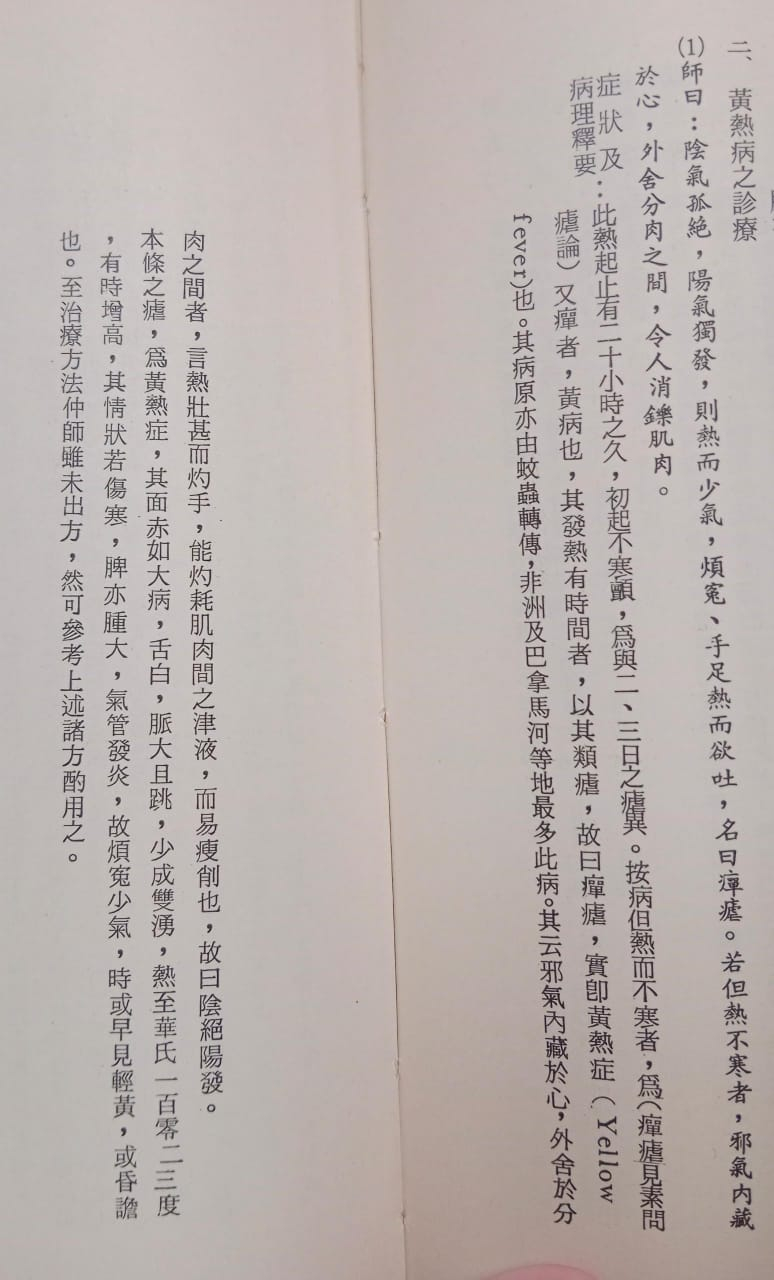 二、黃熱病之診療
(1)師曰：陰氣孤絶，陽氣獨發，則熱而少氣，煩寃、手足熱而欲吐，名曰癉瘧。若但熱不寒者，邪氣內藏
於心，外舍分肉之間，令人消鑠肌肉。
症狀及
病理釋要：此熱起止有二十小時之久，初起不寒顫，爲與二、三日之瘧異。按病但熱而不寒者，爲（癉瘧見素問
瘧論）又癉者，黃病也，其發熱有時間者，以其類瘧，故曰癉瘧，實卽黃熱症（Yellow
fever)也。其病原亦由蚊蟲轉傳，非洲及巴拿馬河等地最多此病。其云邪氣內藏於心，外舍於分
肉之間者，言熱壯甚而灼手，能灼耗肌肉間之津液，而易瘦削也，故曰陰絕陽發。
本條之瘧，爲黃熱症，其面赤如大病，舌白，脈大且跳，少成雙湧，熱至華氏一百零二三度
，有時增高，其情狀若傷寒，脾亦腫大，氣管發炎，故煩寃少氣，時或早見輕黃，或昏譫
也。至治療方法仲師雖未出方，然可參考上述諸方酌用之。